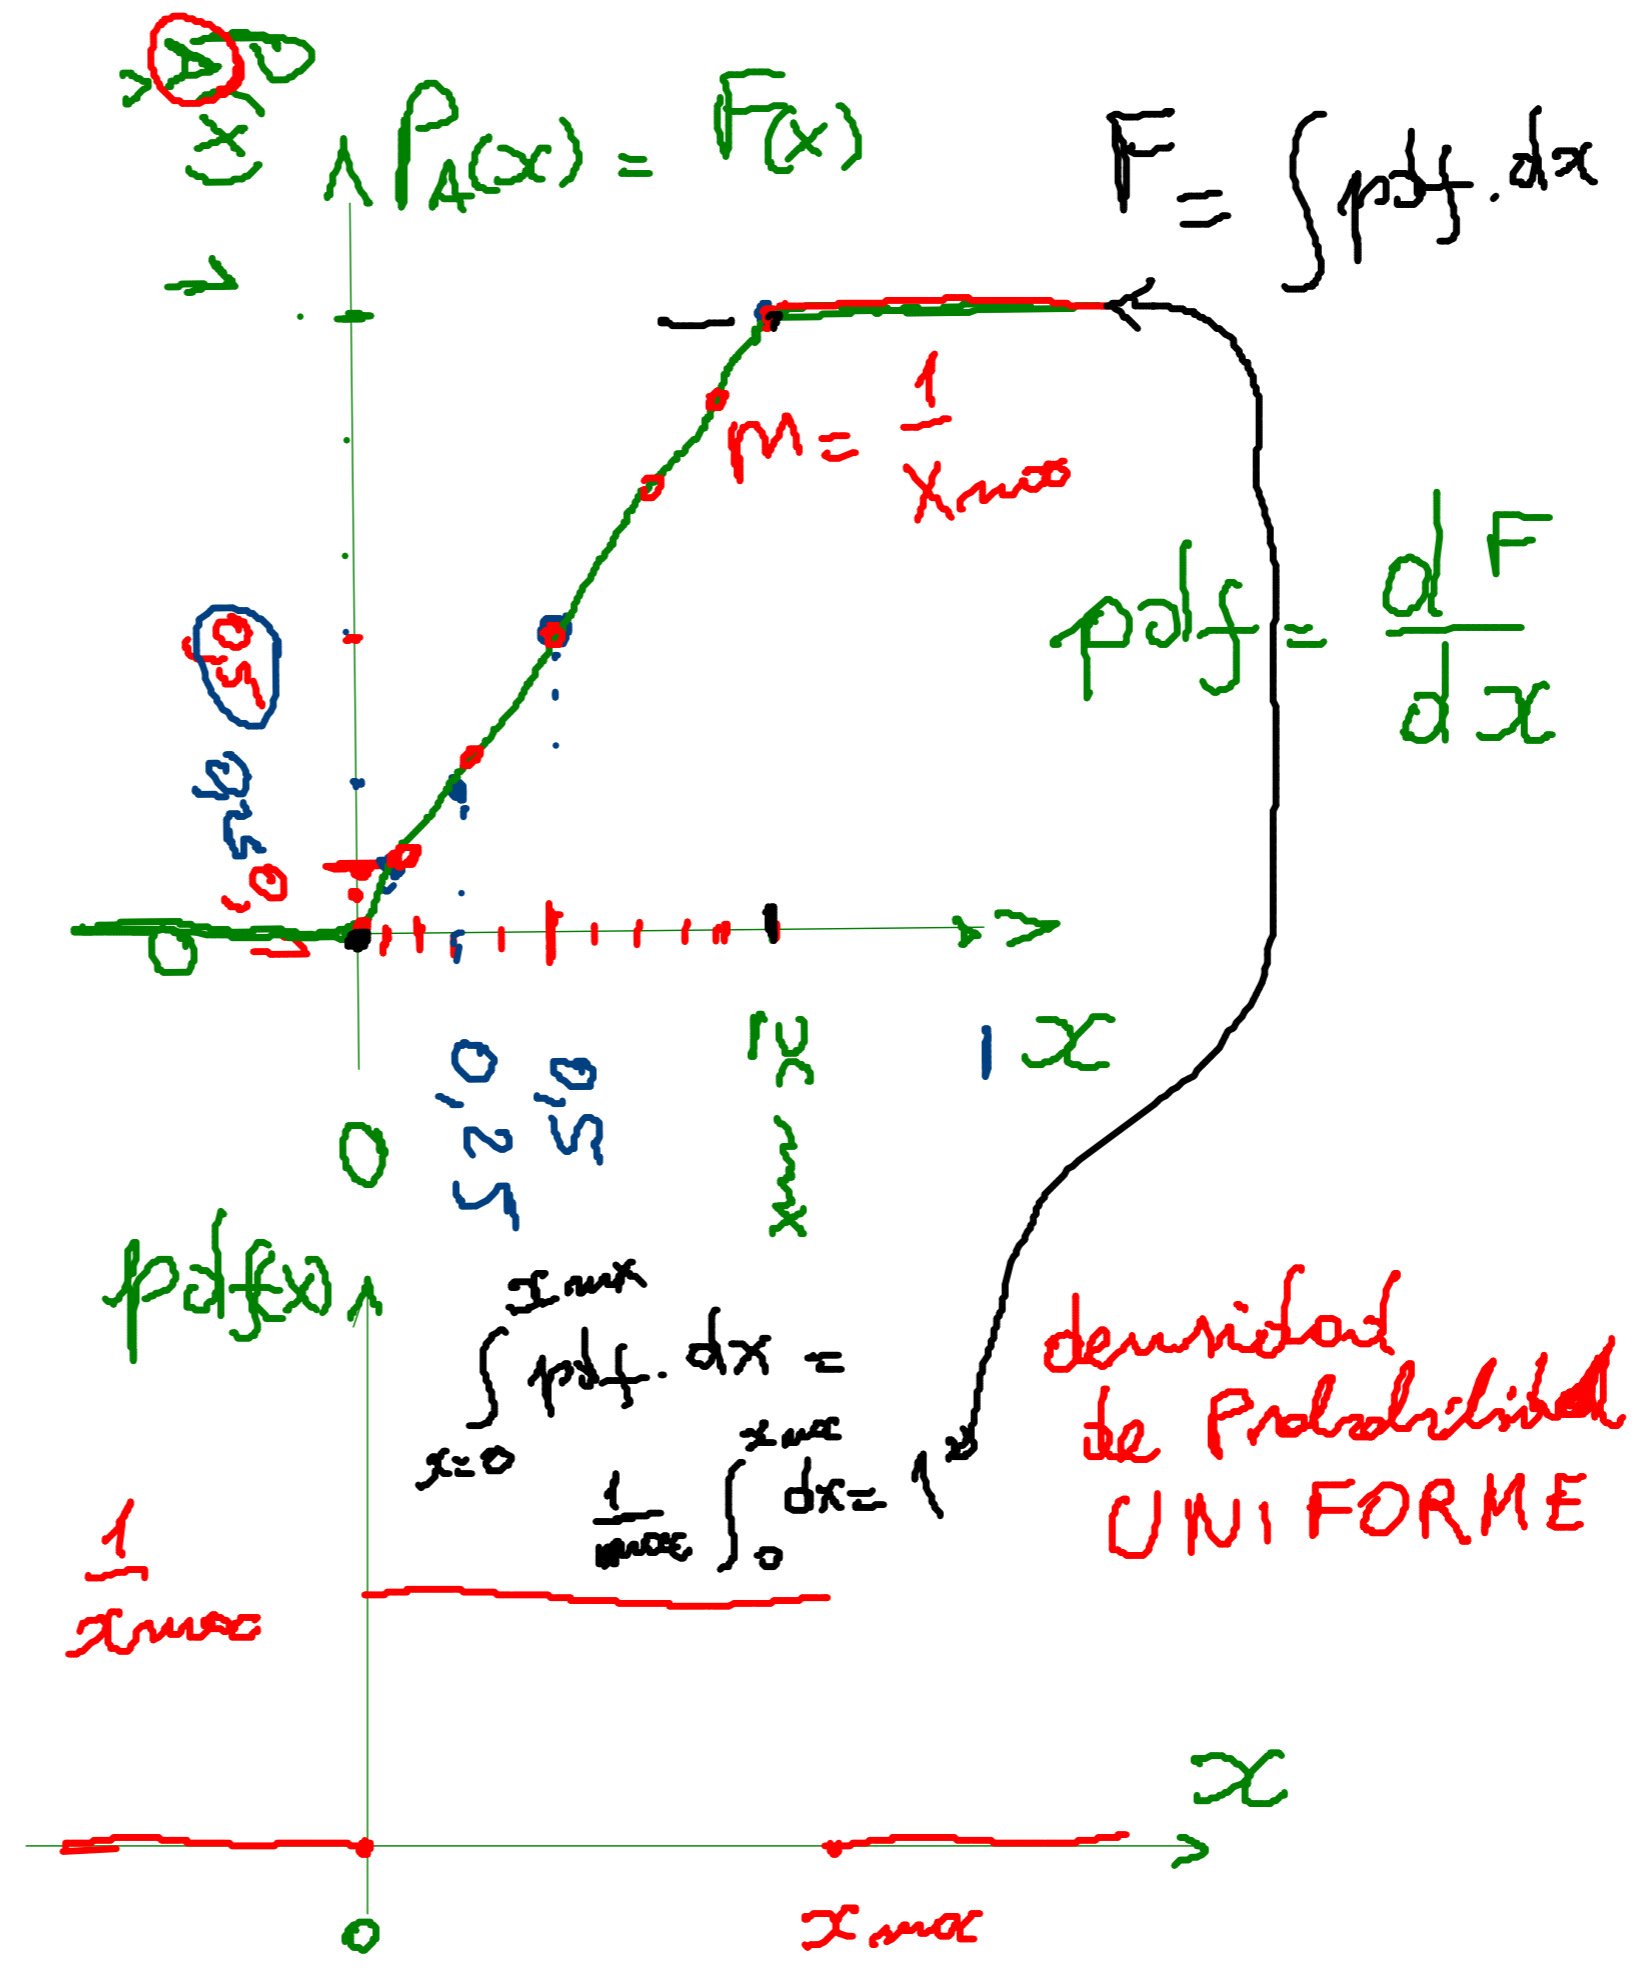 P_A(x) = F(x)
F = ∫ pdf . dx
1
m = 1/xmax
pdf = dF/dx
0,5
0,25
0,1
0
0,25
0,5
xmax
1
x
0
pdf(x)
∫ x=0 xmax pdf . dx =
1/xmax ∫ 0 xmax dx = 1
densidad
de Probabilidad
UNIFORME
1/xmax
x
0
xmax